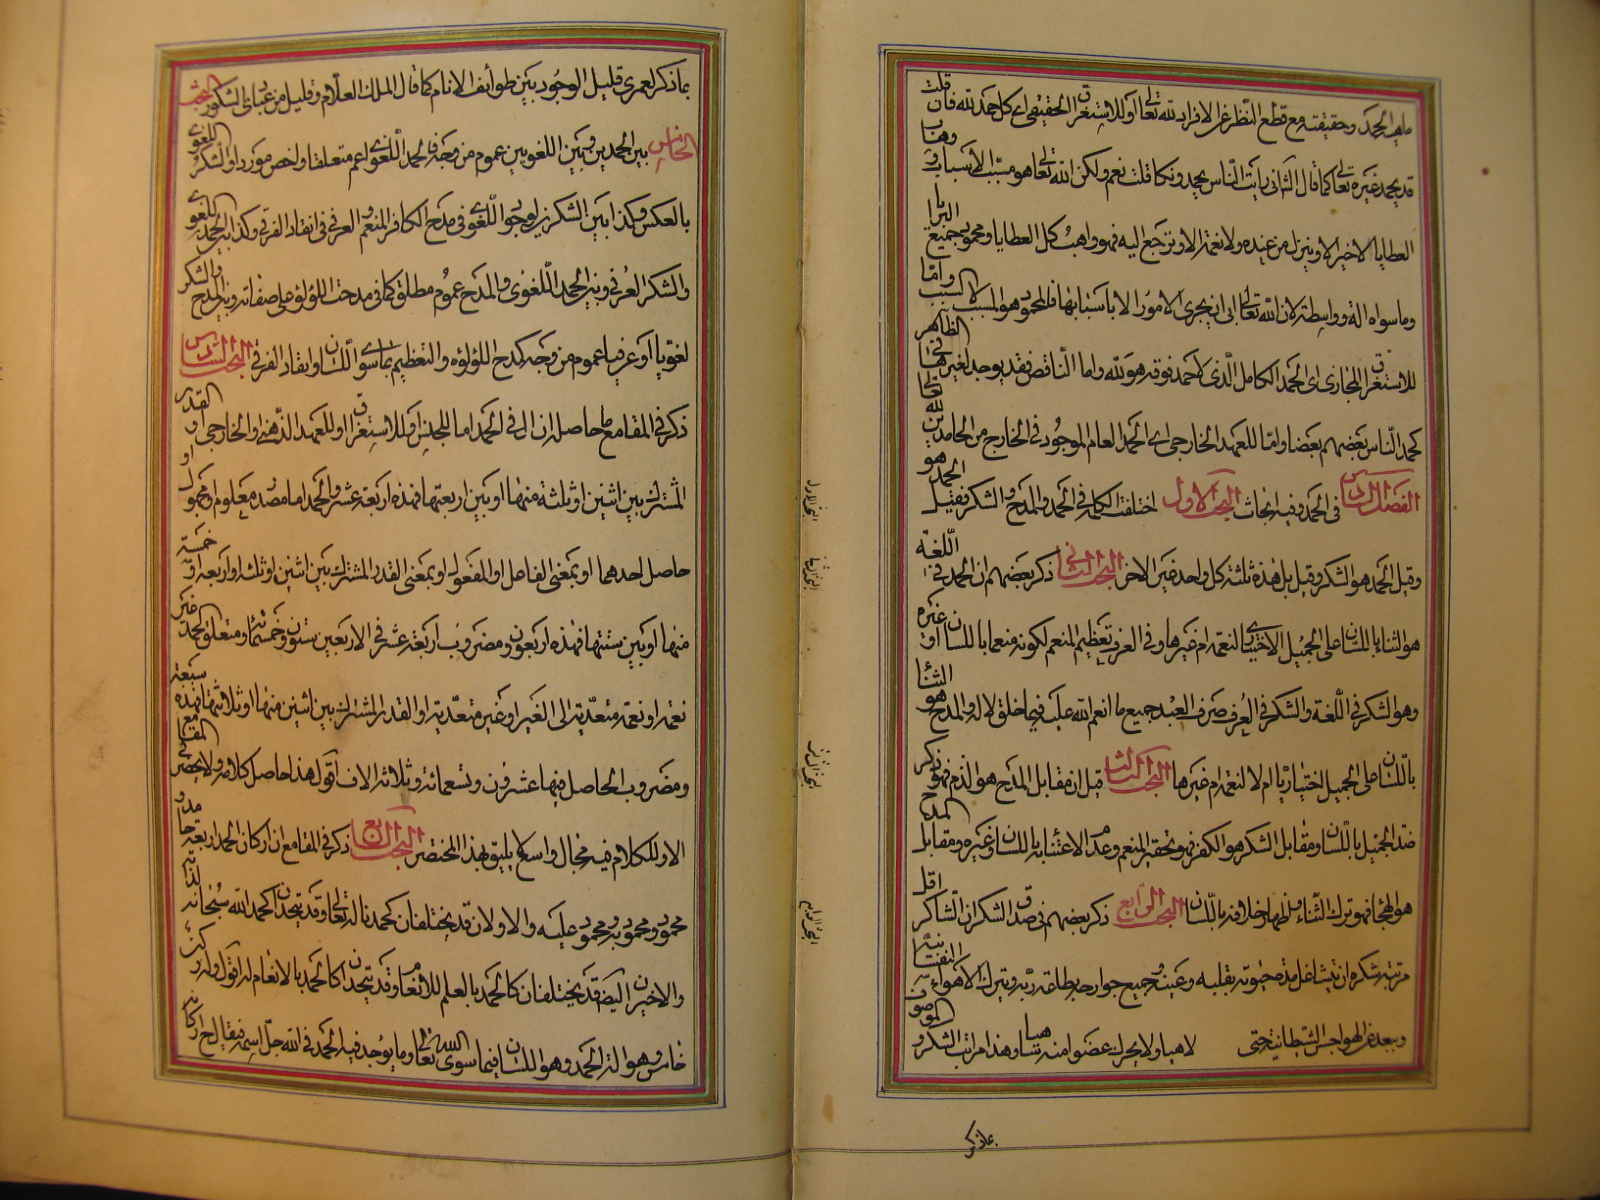 ماهية الحمد وحقيقته مع قطع النظر عن الافراد لله تعالى او للاستغراق الحقيقي اى كل حمد لله فان قلت
قد يحمد غيره تعالى كما قال الثانى رايت الناس يحمدونكا قلت نعم ولكن الله تعالى هو مسبب الاسباب و وهاب
العطايا لا خير الا وينزل من عنده ولا نعمة الا وترجع اليه فهو واهب كل العطايا ومحمود جميع البرايا
وما سواه الة وواسطة لان الله تعالى ابى ان يجرى الامور الا باسبابها فالمحمود هو المسبب لا السبب واما
للاستغراق المجازى اى الحمد الكامل الذى لا حمد فوقه هو لله واما الناقص فقد يوجد لغيره فى الظاهر
كحمد الناس بعضهم بعضا واما للعهد الخارجى اى الحمد العام الموجود فى الخارج من الحامدين لله تعالى
الفصل السادس فى الحمد وفيه ابحاث البحث الاول اختلفت الكلمة فى الحمد والمدح والشكر فقيل الحمد هو
وقيل الحمد هو الشكر وقيل بل هذه ثلثة كل واحد غير الاخر البحث الثانى ذكر بعضهم ان الحمد فى اللغة
هو الثناء باللسان على الجميل الاختيارى لنعمة ام غيرها وفى العرف تعظيم المنعم لكونه منعما باللسان او غيره
وهو الشكر فى اللغة والشكر فى العرف صرف العبد جميع ما انعم الله عليه فيما خلق لاله والمدح هو الثناء
باللسان على الجميل اختياريا ام لا لنعمة ام غيرها البحث الثالث قيل ان مقابل المدح هو الذم فهو ذكر
ضد الجميل باللسان ومقابل الشكر هو الكفر فهو تحقير المنعم وعدم الاعتناء به باللسان وغيره ومقابل المدح
هو الهجا فهو ترك الثناء واظهار خلافه باللسان البحث الرابع ذكر بعضهم فى صدق الشكر ان الشاكر اقل
مرتبة شكره ان يشاغل مدة حيوته بقلبه وعينه وجميع جوارحه بطاعة ربه ويترك الاهواء النفسانية
ويبعد عن الهواجس الشيطانية حتى لاهيا ولا يحرك عضوا منه هباء وهذا مرتب الشكر والموصوف
بما ذكر
بما ذكر لعمرى قليل الوجود بين طوائف الانام كما قال الملك العلام وقليل من عبادى الشكور البحث
الخامس بين الحمدين وبين اللغويين عموم من وجه فالحمد اللغوى اعم متعلقا واخص موردا والشكر اللغوى
بالعكس وكذا بين الشكرين لوجود اللغوى فى مدح الكافر المنعم والعرفى فى انقاد الفرقى وكذا بين الحمد اللغوى
والشكر العرفى وبين الحمد اللغوى والمدح عموم مطلق كما فى مدحت اللؤلؤ على صفائه وبين المدح والشكر
لغويا او عرفيا عموم من وجه كمدح اللؤلؤه والتعظيم بما سوى اللسان وانقاد الفرقى البحث السادس
ذكر فى المقامع ما حاصله ان ال فى الحمد اما للجنس او للاستغراق او للعهد الذهنى والخارجى او القدر
المشترك بين اثنين او ثلثة منها او بين اربعتها فهذه اربعة عشر والحمد اما مصدر معلوم او مجهول او
حاصل احدهما او بمعنى الفاعل او المفعول او بمعنى القدر المشترك بين اثنين او ثلثة او اربعة او خمسة
منها او بين ستتها فهذه اربعون ومضروب اربعة عشر فى الاربعين ستون وخمسمائة ومتعلق الحمد غير
نعمة او نعمة متعدية الى الغير او غير متعدية او القدر المشترك بين اثنين منها او ثلاثتها فهذه سبعة
ومضروب الحاصل فيها عشرون وتسعمائة وثلاثة الاف اقول هذا حاصل كلامه ولا يحضرنى المقامع
الا وللكلام فيه مجال واسع لا يليق بهذا المختصر البحث السابع ذكر فى المقامع ان اركان الحمد اربعة حامد و
محمود ومحمود به ومحمود عليه والاولان قد يختلفان كحمدنا له تعالى وقد يتحدان كحمد الله سبحانه لذاته
والاخيران ايضا قد يختلفان كالحمد بالعلم للانعام وقد يتحدان كالحمد بالانعام له اقول وله ركن
خامس وهو الة الحمد وهو اللسان فيما سوى الله تعالى وما يوجد فيه الحمد فى الله جل اسمه فيقال ح اركانه
البحث الاول
البحث الثانى
البحث الثالث
البحث الرابع